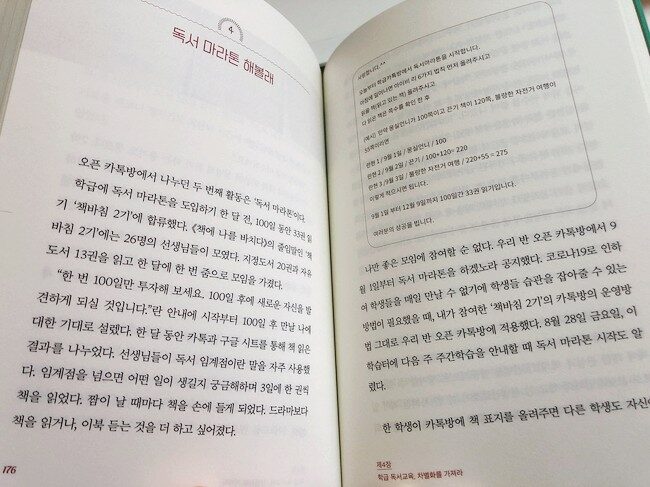 4
독서 마라톤 해볼래
오픈 카톡방에서 나누던 두 번째 활동은 '독서 마라톤'이다.
학급에 독서 마라톤을 도입하기 한 달 전, 100일 동안 33권 읽
기 '책바침 2기'에 합류했다. 《책에 나를 바치다》의 줄임말인 '책
바침 2기'에는 26명의 선생님들이 모였다. 지정도서 20권과 자유
도서 13권을 읽고 한 달에 한 번 줌으로 모임을 가졌다.
"한 번 100일만 투자해 보세요. 100일 후에 새로운 자신을 발
견하게 되실 것입니다."란 안내에 시작부터 100일 후 만날 나에
대한 기대로 설렜다. 한 달 동안 카톡과 구글 시트를 통해 책 읽은
결과를 나누었다. 선생님들이 독서 임계점이란 말을 자주 사용했
다. 임계점을 넘으면 어떤 일이 생길지 궁금해하며 3일에 한 권씩
책을 읽었다. 짬이 날 때마다 책을 손에 들게 되었다. 드라마보다
책을 읽거나, 이북 듣는 것을 더 하고 싶어졌다.
176
사랑합니다.^^
오늘부터 학급카톡방에서 독서마라톤을 시작합니다.
아침에 일어나면 아이비 리 6가지 법칙 먼저 올려주시고
읽을 책(읽고 있는 책) 올려주시고
다 읽은 책은 쪽수를 확인한 후
(예시) 만약 몽실언니가 100쪽이고 끈기 책이 120쪽, 불량한 자전거 여행이
55쪽이라면
선현 1 / 9월 1일 / 몽실언니 / 100
선현 2 / 9월 2일 / 끈기 / 100+120= 220
선현 3 / 9월 3일 / 불량한 자전거 여행 / 220+55 = 275
이렇게 적으시면 됩니다.
9월 1일 부터 12월 9일까지 100일간 33권 읽기입니다.
여러분의 성공을 빕니다.
나만 좋은 모임에 참여할 순 없다. 우리 반 오픈 카톡방에서 9
월 1일부터 독서 마라톤을 하겠노라 공지했다. 코로나19로 인하
여 학생들을 매일 만날 수 없기에 학생들 습관을 잡아줄 수 있는
방법이 필요했을 때, 내가 참여한 '책바침 2기'의 카톡방의 운영방
법 그대로 우리 반 카톡방에 적용했다. 8월 28일 금요일, 이
학습터에 다음 주 주간학습을 안내할 때 독서 마라톤 시작도 알
렸다.
한 학생이 카톡방에 책 표지를 올려주면 다른 학생도 자신이
제4장
학급 독서교육, 차별화를 가져라